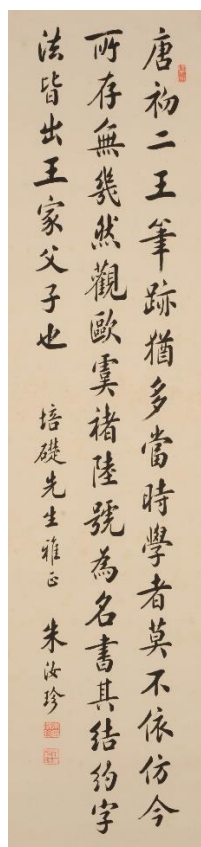 唐初二王筆跡猶多當時學者莫不依仿今
所存無幾然觀歐虞褚陸號為名書其結約字
法皆出王家父子也
培礎先生雅正
朱汝珍